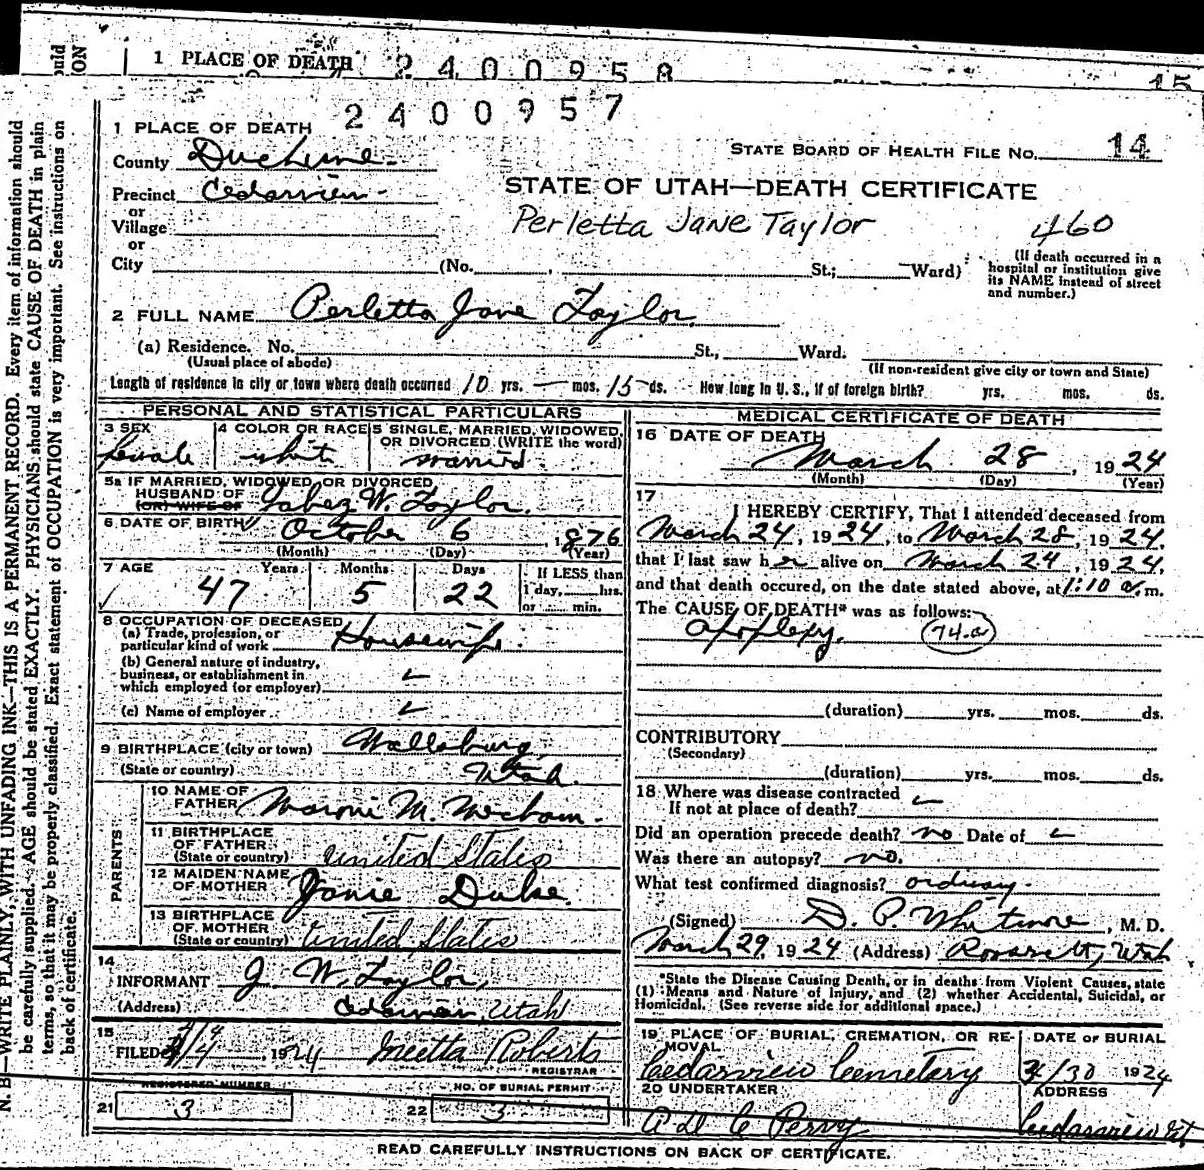 ould
ION
1 PLACE OF DEATH 2400958
15
2400957
N. B.—WRITE PLAINLY, WITH UNFADING INK—THIS IS A PERMANENT RECORD. Every item of information should
be carefully supplied. AGE should be stated EXACTLY. PHYSICIANS should state CAUSE OF DEATH in plain
terms, so that it may be properly classified. Exact statement of OCCUPATION is very important. See instructions on
back of certificate.
1 PLACE OF DEATH
STATE BOARD OF HEALTH FILE NO. 14
County Duchesne
STATE OF UTAH—DEATH CERTIFICATE
Precinct Cedarview
or
Village
Perletta Jane Taylor 460
or
City (No. , St.; Ward)
(If death occurred in a
hospital or institution give
its NAME instead of street
and number.)
2 FULL NAME Perletta Jane Taylor
(a) Residence. No. St., Ward.
(Usual place of abode) (If non-resident give city or town and State)
Length of residence in city or town where death occurred 10 yrs. — mos. 15 ds. How long in U. S., if of foreign birth? yrs. mos. ds.
PERSONAL AND STATISTICAL PARTICULARS
3 SEX 4 COLOR OR RACE 5 SINGLE, MARRIED, WIDOWED,
OR DIVORCED (WRITE the word)
female white married
5a IF MARRIED, WIDOWED, OR DIVORCED
HUSBAND OF
(OR) WIFE OF Jabez W. Taylor
6 DATE OF BIRTH October 6, 1876
(Month) (Day) (Year)
7 AGE Years Months Days If LESS than
1 day, hrs.
or min.
47 5 22
8 OCCUPATION OF DECEASED
(a) Trade, profession, or
particular kind of work Housewife
(b) General nature of industry,
business, or establishment in
which employed (or employer)
(c) Name of employer
9 BIRTHPLACE (city or town) Wallsburg
(State or country) Utah
PARENTS
10 NAME OF
FATHER Maroni M. Mecham
11 BIRTHPLACE
OF FATHER
(State or country) United States
12 MAIDEN NAME
OF MOTHER Janie Duke
13 BIRTHPLACE
OF MOTHER
(State or country) United States
14
INFORMANT J. W. Taylor
(Address) Cedarview, Utah
15
FILED 4/4, 1924 Roberts
REGISTRAR
REGISTERED NUMBER NO. OF BURIAL PERMIT
21 3 22 3
MEDICAL CERTIFICATE OF DEATH
16 DATE OF DEATH
March 28, 1924
(Month) (Day) (Year)
17
I HEREBY CERTIFY, That I attended deceased from
March 24, 1924, to March 28, 1924,
that I last saw her alive on March 24, 1924,
and that death occured, on the date stated above, at 1:10 a. m.
The CAUSE OF DEATH* was as follows:
apoplexy. 74-a
(duration) yrs. mos. ds.
CONTRIBUTORY
(Secondary)
(duration) yrs. mos. ds.
18 Where was disease contracted
If not at place of death?
Did an operation precede death? no Date of
Was there an autopsy? no.
What test confirmed diagnosis? ordinary
(Signed) D. P. Whitmore, M. D.
March 29, 1924 (Address) Roosevelt, Utah
*State the Disease Causing Death, or in deaths from Violent Causes, state
(1) Means and Nature of Injury, and (2) whether Accidental, Suicidal, or
Homicidal. (See reverse side for additional space.)
19 PLACE OF BURIAL, CREMATION, OR RE-
MOVAL DATE OF BURIAL
Cedarview Cemetery 3/30 1924
20 UNDERTAKER ADDRESS
Perry Cedarview Ut
READ CAREFULLY INSTRUCTIONS ON BACK OF CERTIFICATE.